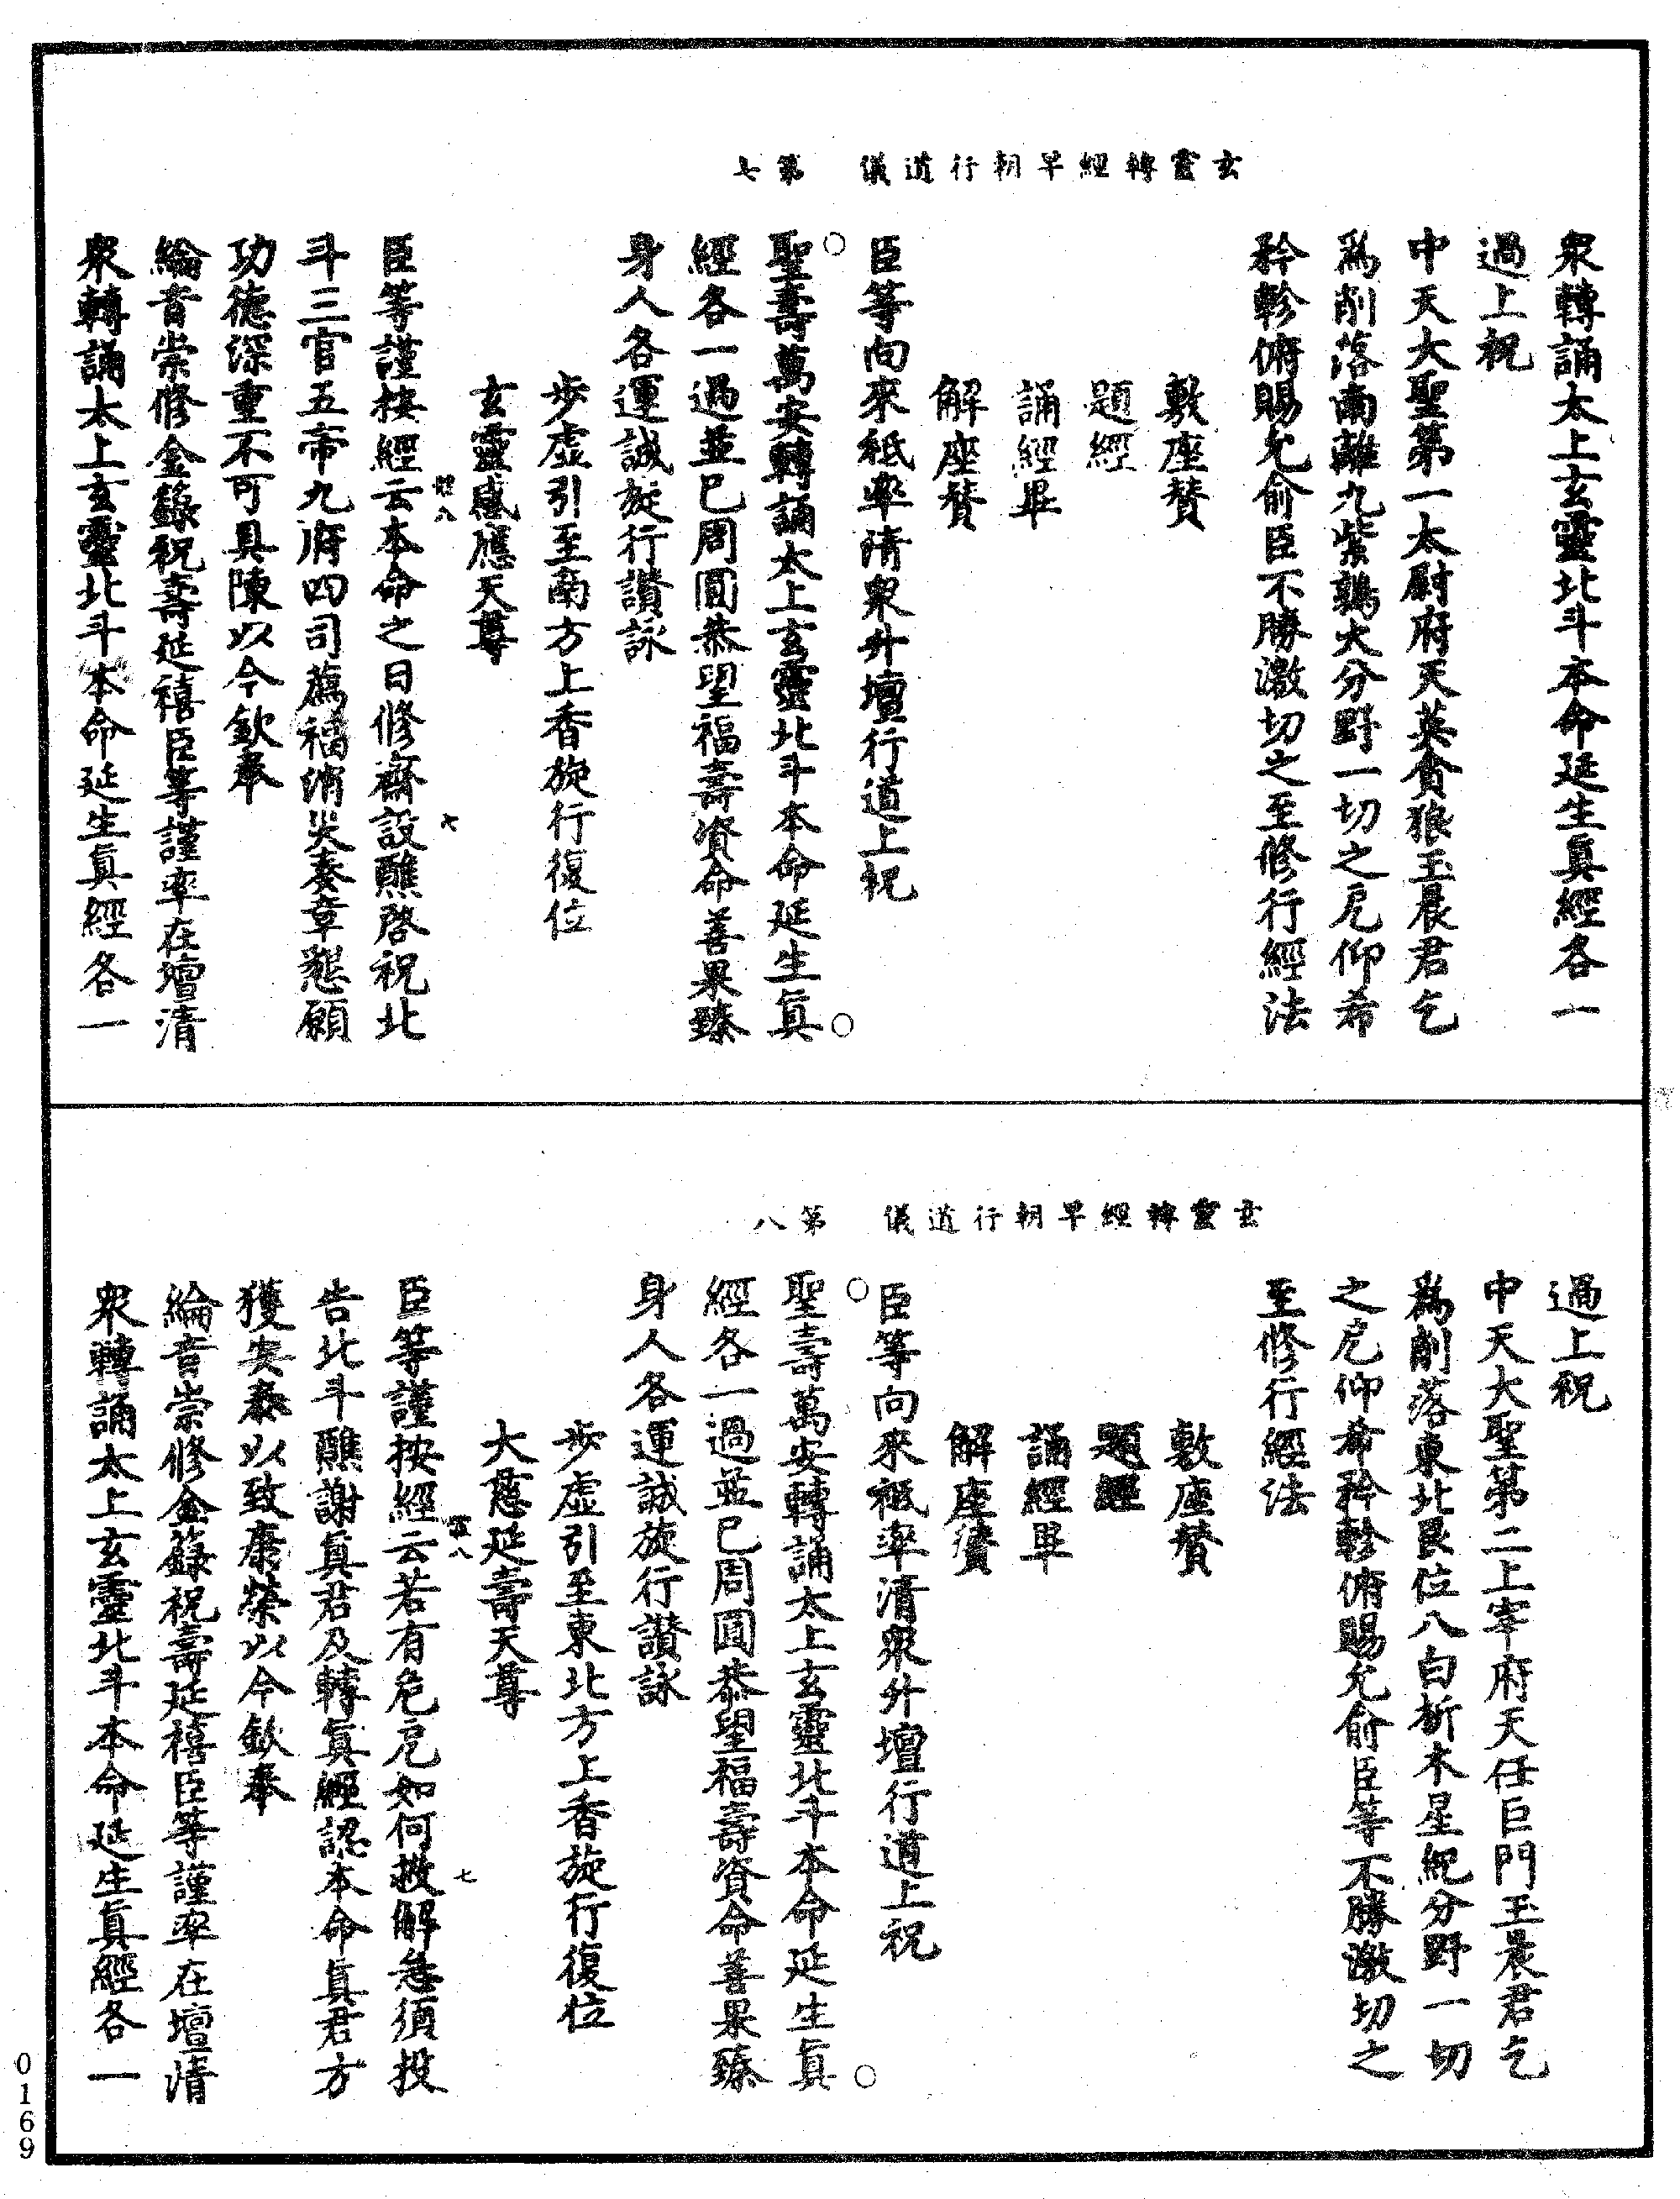 玄靈轉經早朝行道儀　第七
衆轉誦太上玄靈北斗本命延生眞經各一
過上祝
中天大聖第一太尉府天英貪狼玉晨君乞
爲削落南離九紫鶉火分野一切之戹仰希
矜軫俯賜允俞臣不勝激切之至修行經法
敷座賛
題經
誦經畢
解座賛
臣等向來秪率清衆升壇行道上祝
○聖壽萬安轉誦太上玄靈北斗本命延生眞○
經各一過並已周圓恭望福壽資命善果臻
身人各運誠旋行讃詠
步虛引至南方上香旋行復位
玄靈感應天尊
臣等謹按經云本命之日修齋設醮啓祝北
斗三官五帝九府四司薦福消災奏章懇願
功德深重不可具陳以今欽奉
綸音崇修金籙祝壽延禧臣等謹率在壇清
衆轉誦太上玄靈北斗本命延生眞經各一
玄靈轉經早朝行道儀　第八
過上祝
中天大聖第二上宰府天任巨門玉晨君乞
爲削落東北艮位八白析木星紀分野一切
之戹仰希矜軫俯賜允俞臣等不勝激切之
至修行經法
敷座賛
題經
誦經畢
解座賛
臣等向來秪率清衆升壇行道上祝
○聖壽萬安轉誦太上玄靈北斗本命延生眞○
經各一過並已周圓恭望福壽資命善果臻
身人各運誠旋行讃詠
步虛引至東北方上香旋行復位
大慈延壽天尊
臣等謹按經云若有危戹如何救解急須投
告北斗醮謝眞君及轉眞經認本命眞君方
獲安泰以致康榮以今欽奉
綸音崇修金籙祝壽延禧臣等謹率在壇清
衆轉誦太上玄靈北斗本命延生眞經各一
0169